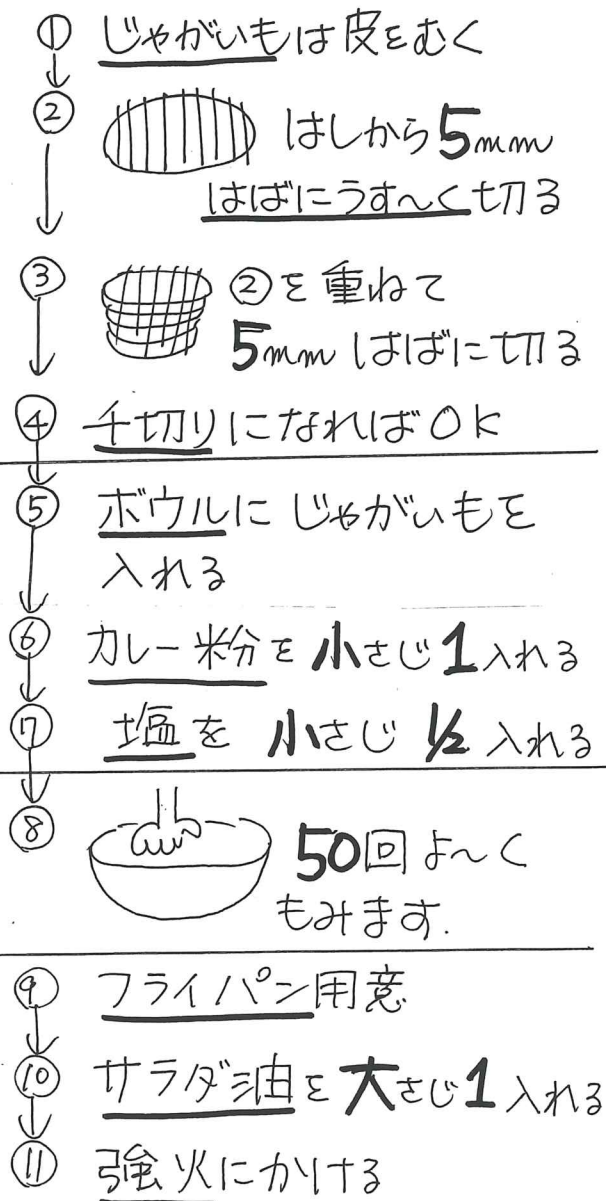 ① じゃがいもは皮をむく
② はしから5mm
はばにうす〜く切る
③ ②を重ねて
5mmはばに切る
④ 千切りになればOK
⑤ ボウルにじゃがいもを
入れる
⑥ カレー粉を小さじ1入れる
⑦ 塩を小さじ1/2入れる
⑧ 50回よ〜く
もみます.
⑨ フライパン用意
⑩ サラダ油を大さじ1入れる
⑪ 強火にかける